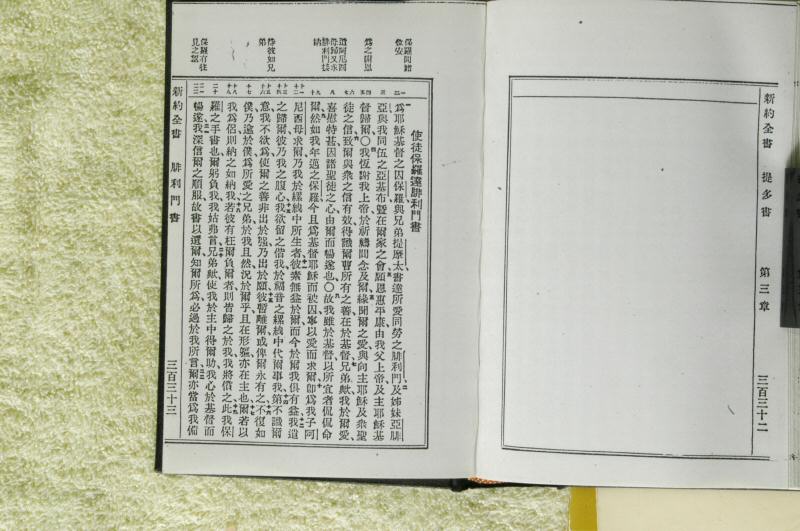 新約全書 提多書 第三章 三百三十二
保羅問諸
位安
爲之謝恩
使徒保羅達腓利門書
爲耶穌基督之囚保羅與兄弟提摩太書達所愛同勞之腓利門及姊妹亞腓
亞與我同伍之亞基布曁在爾家之會願恩惠平康由我父上帝及主耶穌基
督歸爾○我恆謝我上帝於祈禱間念及爾緣聞爾之愛與向主耶穌及衆聖
徒之信致爾與衆之信有效得識爾曹所有之善在於基督兄弟歟我於爾愛
喜慰特甚因諸聖徒之心由爾而暢遂也○故我雖於基督以所宜者侃侃命
爾然如我年邁之保羅今且爲基督耶穌而被囚寧以愛而求爾卽爲我子阿
尼西母求爾乃我於縲絏中所生者彼素無益於爾而今於爾我俱有益我遣
之歸爾彼乃我之腹心我欲留之偕我於福音之縲絏中代爾事我第不識爾
意我不欲爲使爾之善非出於強乃出於願彼暫離爾或俾爾永有之不復如
僕乃逾於僕爲所愛之兄弟於我且然況於爾乎且在形軀亦在主也爾若以
我爲侶則納之如納我若彼有枉爾負爾者則皆歸之於我我將償之此我保
羅之手書也爾躬負我我姑弗言兄弟歟使我於主中得爾助我心於基督而
暢遂我深信爾之順服故書以遺爾知爾所爲必過於我所言爾亦當爲我備
待彼如兄
弟
新約全書 腓利門書 三百三十三